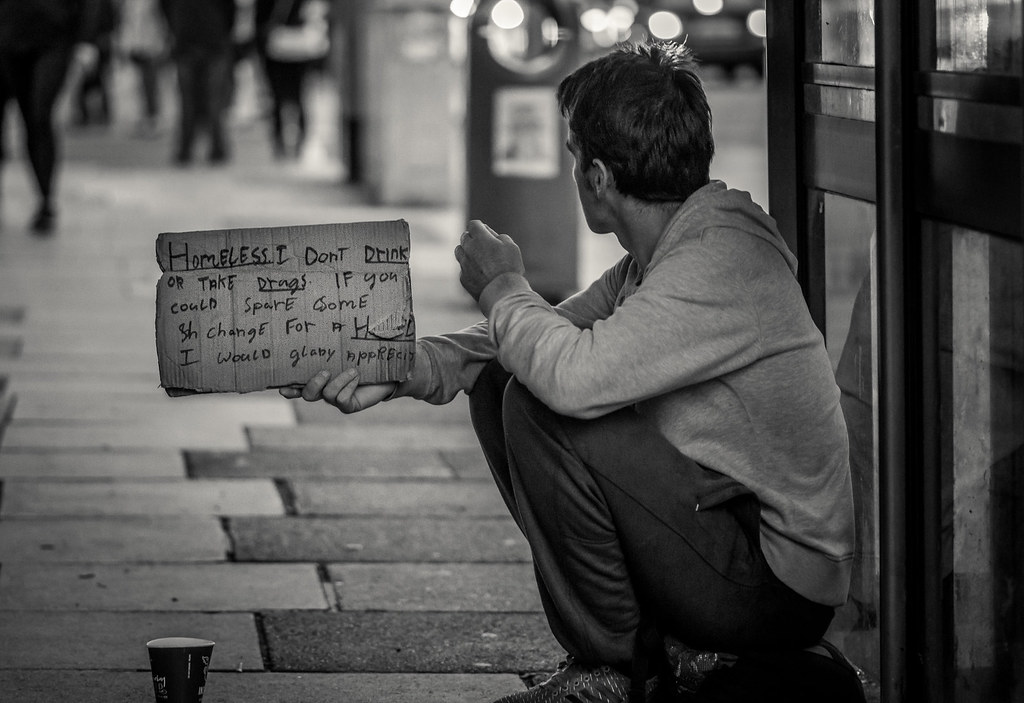 HOMELESS. I DONT DRINK
OR TAKE DRUGS. IF YOU
COULD SPARE SOME
CHANGE FOR A
I WOULD GLADY